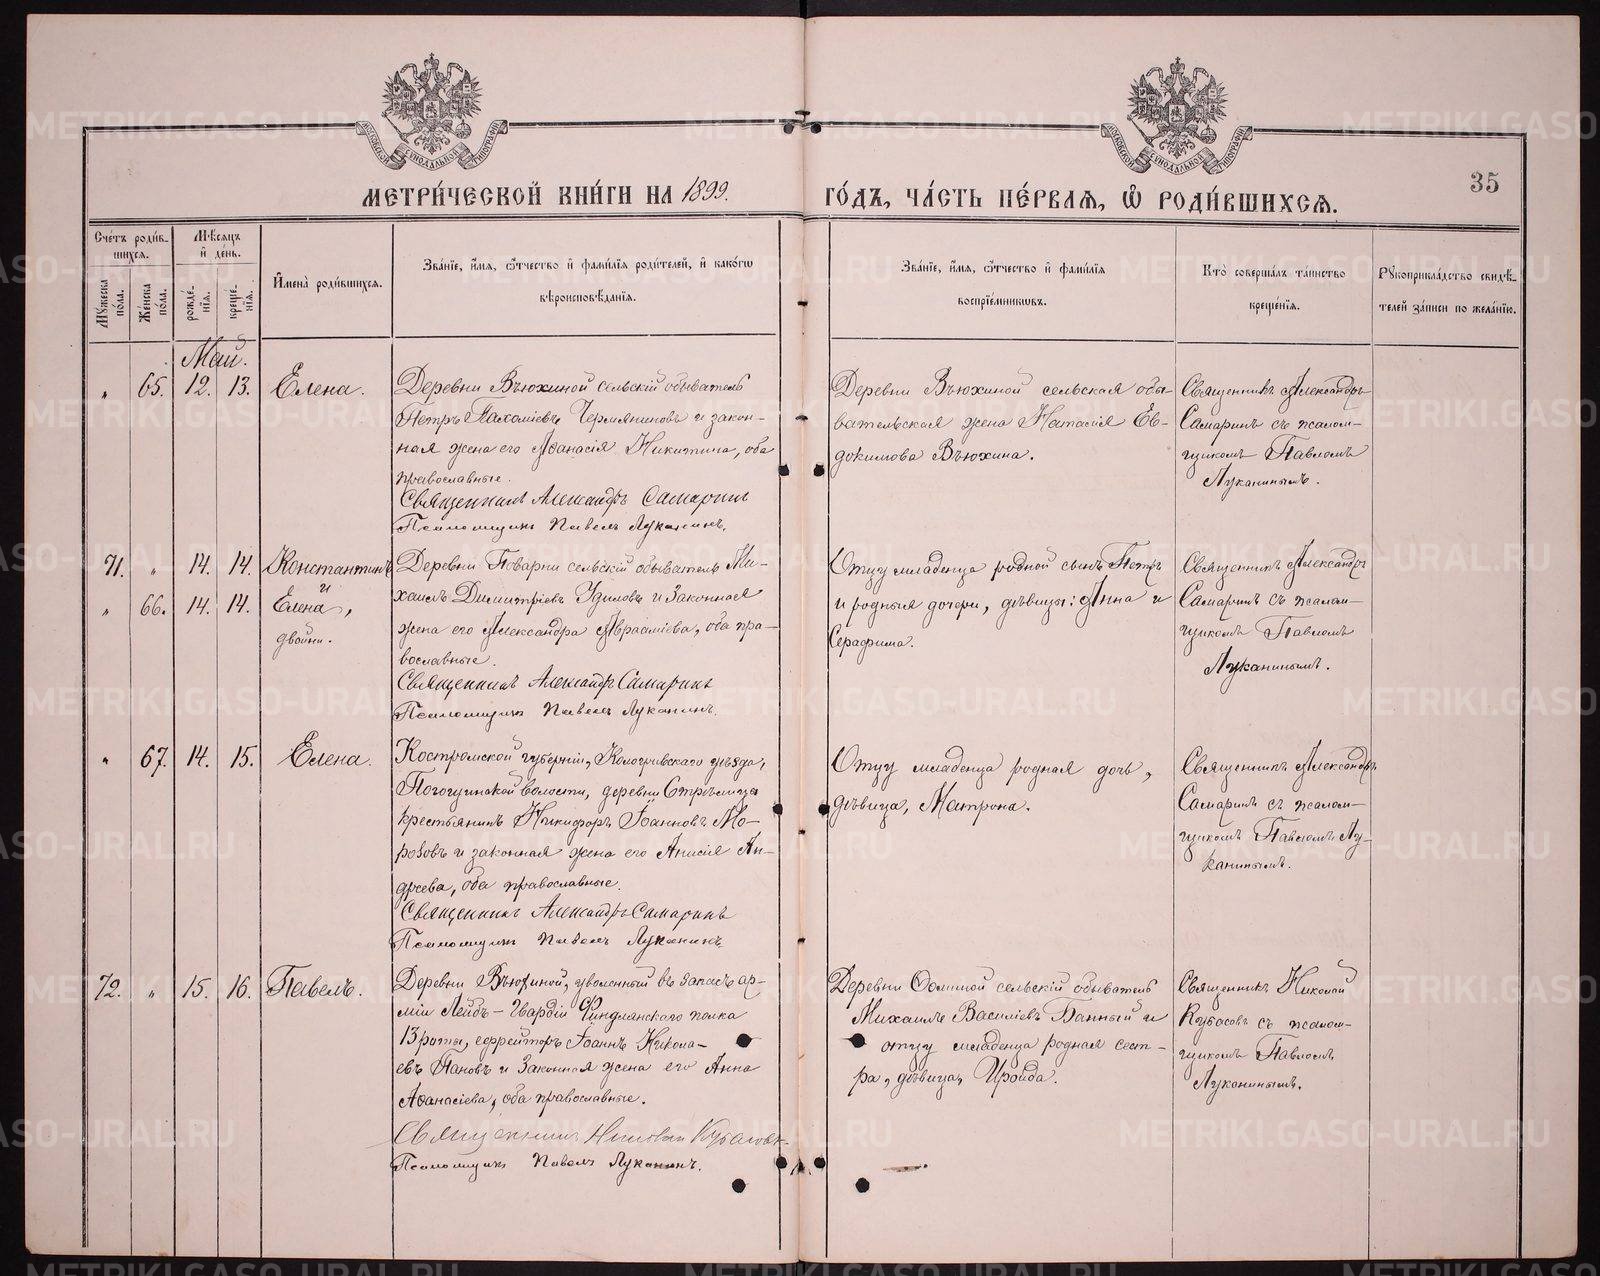 МОСКОВСКОЙ СѴНОДАЛЬНОЙ ТИПОГРАФІИ
МОСКОВСКОЙ СѴНОДАЛЬНОЙ ТИПОГРАФІИ
35
МЕТРИ́ЧЕСКОЙ КНИ́ГИ НА 1899. ГО́ДЪ, ЧА́СТЬ ПЕ́РВАЯ, Ѽ РОДИ́ВШИХСЯ.
Сче́тъ роди́вшихся.
Мѣ́сяцъ и҆ де́нь.
Мꙋ́жеска по́ла.
Же́нска по́ла.
рожде́нїя.
креще́нїя.
И҆мена̀ роди́вшихся.
Зва́нїе, и҆́мя, ѻ҆́тчество и҆ фами́лїя роди́телей, и҆ како́гѡ вѣроисповѣ́данїя.
Зва́нїе, и҆́мя, ѻ҆́тчество и҆ фами́лїя воспрїе́мникѡвъ.
Кто̀ соверша́лъ та́инство креще́нїя.
Рꙋкоприкла́дство свидѣ́телей за́писи по жела́нїю.
Май.
" 65. 12. 13. Елена.
Деревни Вьюхиной сельскій обыватель
Петръ Пахоміевъ Чермяниновъ и закон-
ная жена его Аѳанасія Никитина, оба
православные.
Священникъ Александръ Самаринъ
Псаломщикъ Павелъ Луканинъ.
Деревни Вьюхиной сельская обы-
вательская жена Наталія Ев-
докимова Вьюхина.
Священникъ Александръ
Самаринъ съ псалом-
щикомъ Павломъ
Луканинымъ.
71. " 14. 14. Константинъ
и
" 66. 14. 14. Елена,
двойни.
Деревни Поварни сельскій обыватель Ми-
хаилъ Димитріевъ и Законная
жена его Александра Авраамиева, оба пра-
вославные.
Священникъ Александръ Самаринъ
Псаломщикъ Павелъ Луканинъ.
Отцу младенца родной сынъ Петръ
и родныя дочери, дѣвицы: Анна и
Серафима.
Священникъ Александръ
Самаринъ съ псалом-
щикомъ Павломъ
Луканинымъ.
" 67. 14. 15. Елена.
Костромской губерніи, Кологривскаго уѣзда,
волости, деревни Стрѣлица
крестьянинъ Никифоръ Іоанновъ Мо-
розовъ и законная жена его Анисія Ан-
дреева, оба православные.
Священникъ Александръ Самаринъ
Псаломщикъ Павелъ Луканинъ.
Отцу младенца родная дочь,
дѣвица, Матрона.
Священникъ Александръ
Самаринъ съ псалом-
щикомъ Павломъ Лу-
канинымъ.
72. " 15. 16. Павелъ.
Деревни Вьюхиной, уволенный въ запасъ ар-
міи Лейбъ-Гвардіи Финдлянскаго полка
13 роты, ефрейторъ Іоаннъ Никола-
евъ Пановъ и Законная жена его Анна
Аѳанасіева, оба православные.
Священникъ Николай Кубасовъ
Псаломщикъ Павелъ Луканинъ.
Деревни Ѳоминой сельскій обыватель
Михаилъ Василіевъ Банный и
отцу младенца родная сест-
ра, дѣвица, Ироида.
Священникъ Николай
Кубасовъ съ псалом-
щикомъ Павломъ
Луканинымъ.
METRIKI.GASO-URAL.RU